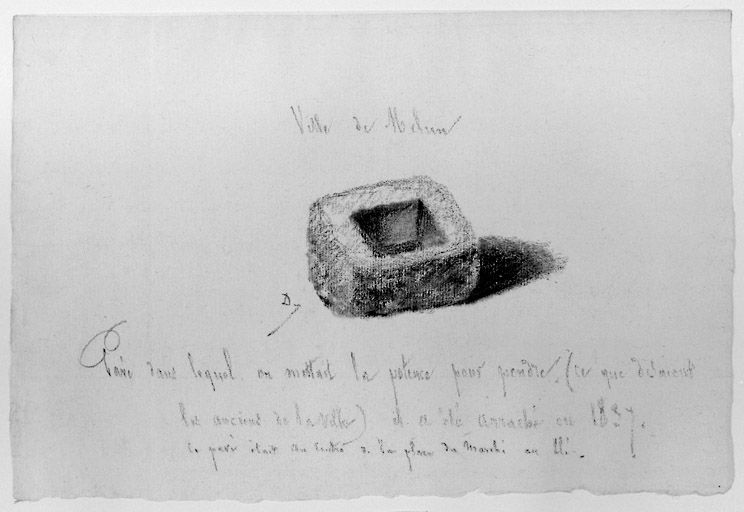 Ville de Melun
D
Pavé dans lequel on mettait la potence pour pendre, (ce que disaient
les anciens de la ville) il a été arraché en 1837.
Ce pavé était au centre de la place du Marché au blé.